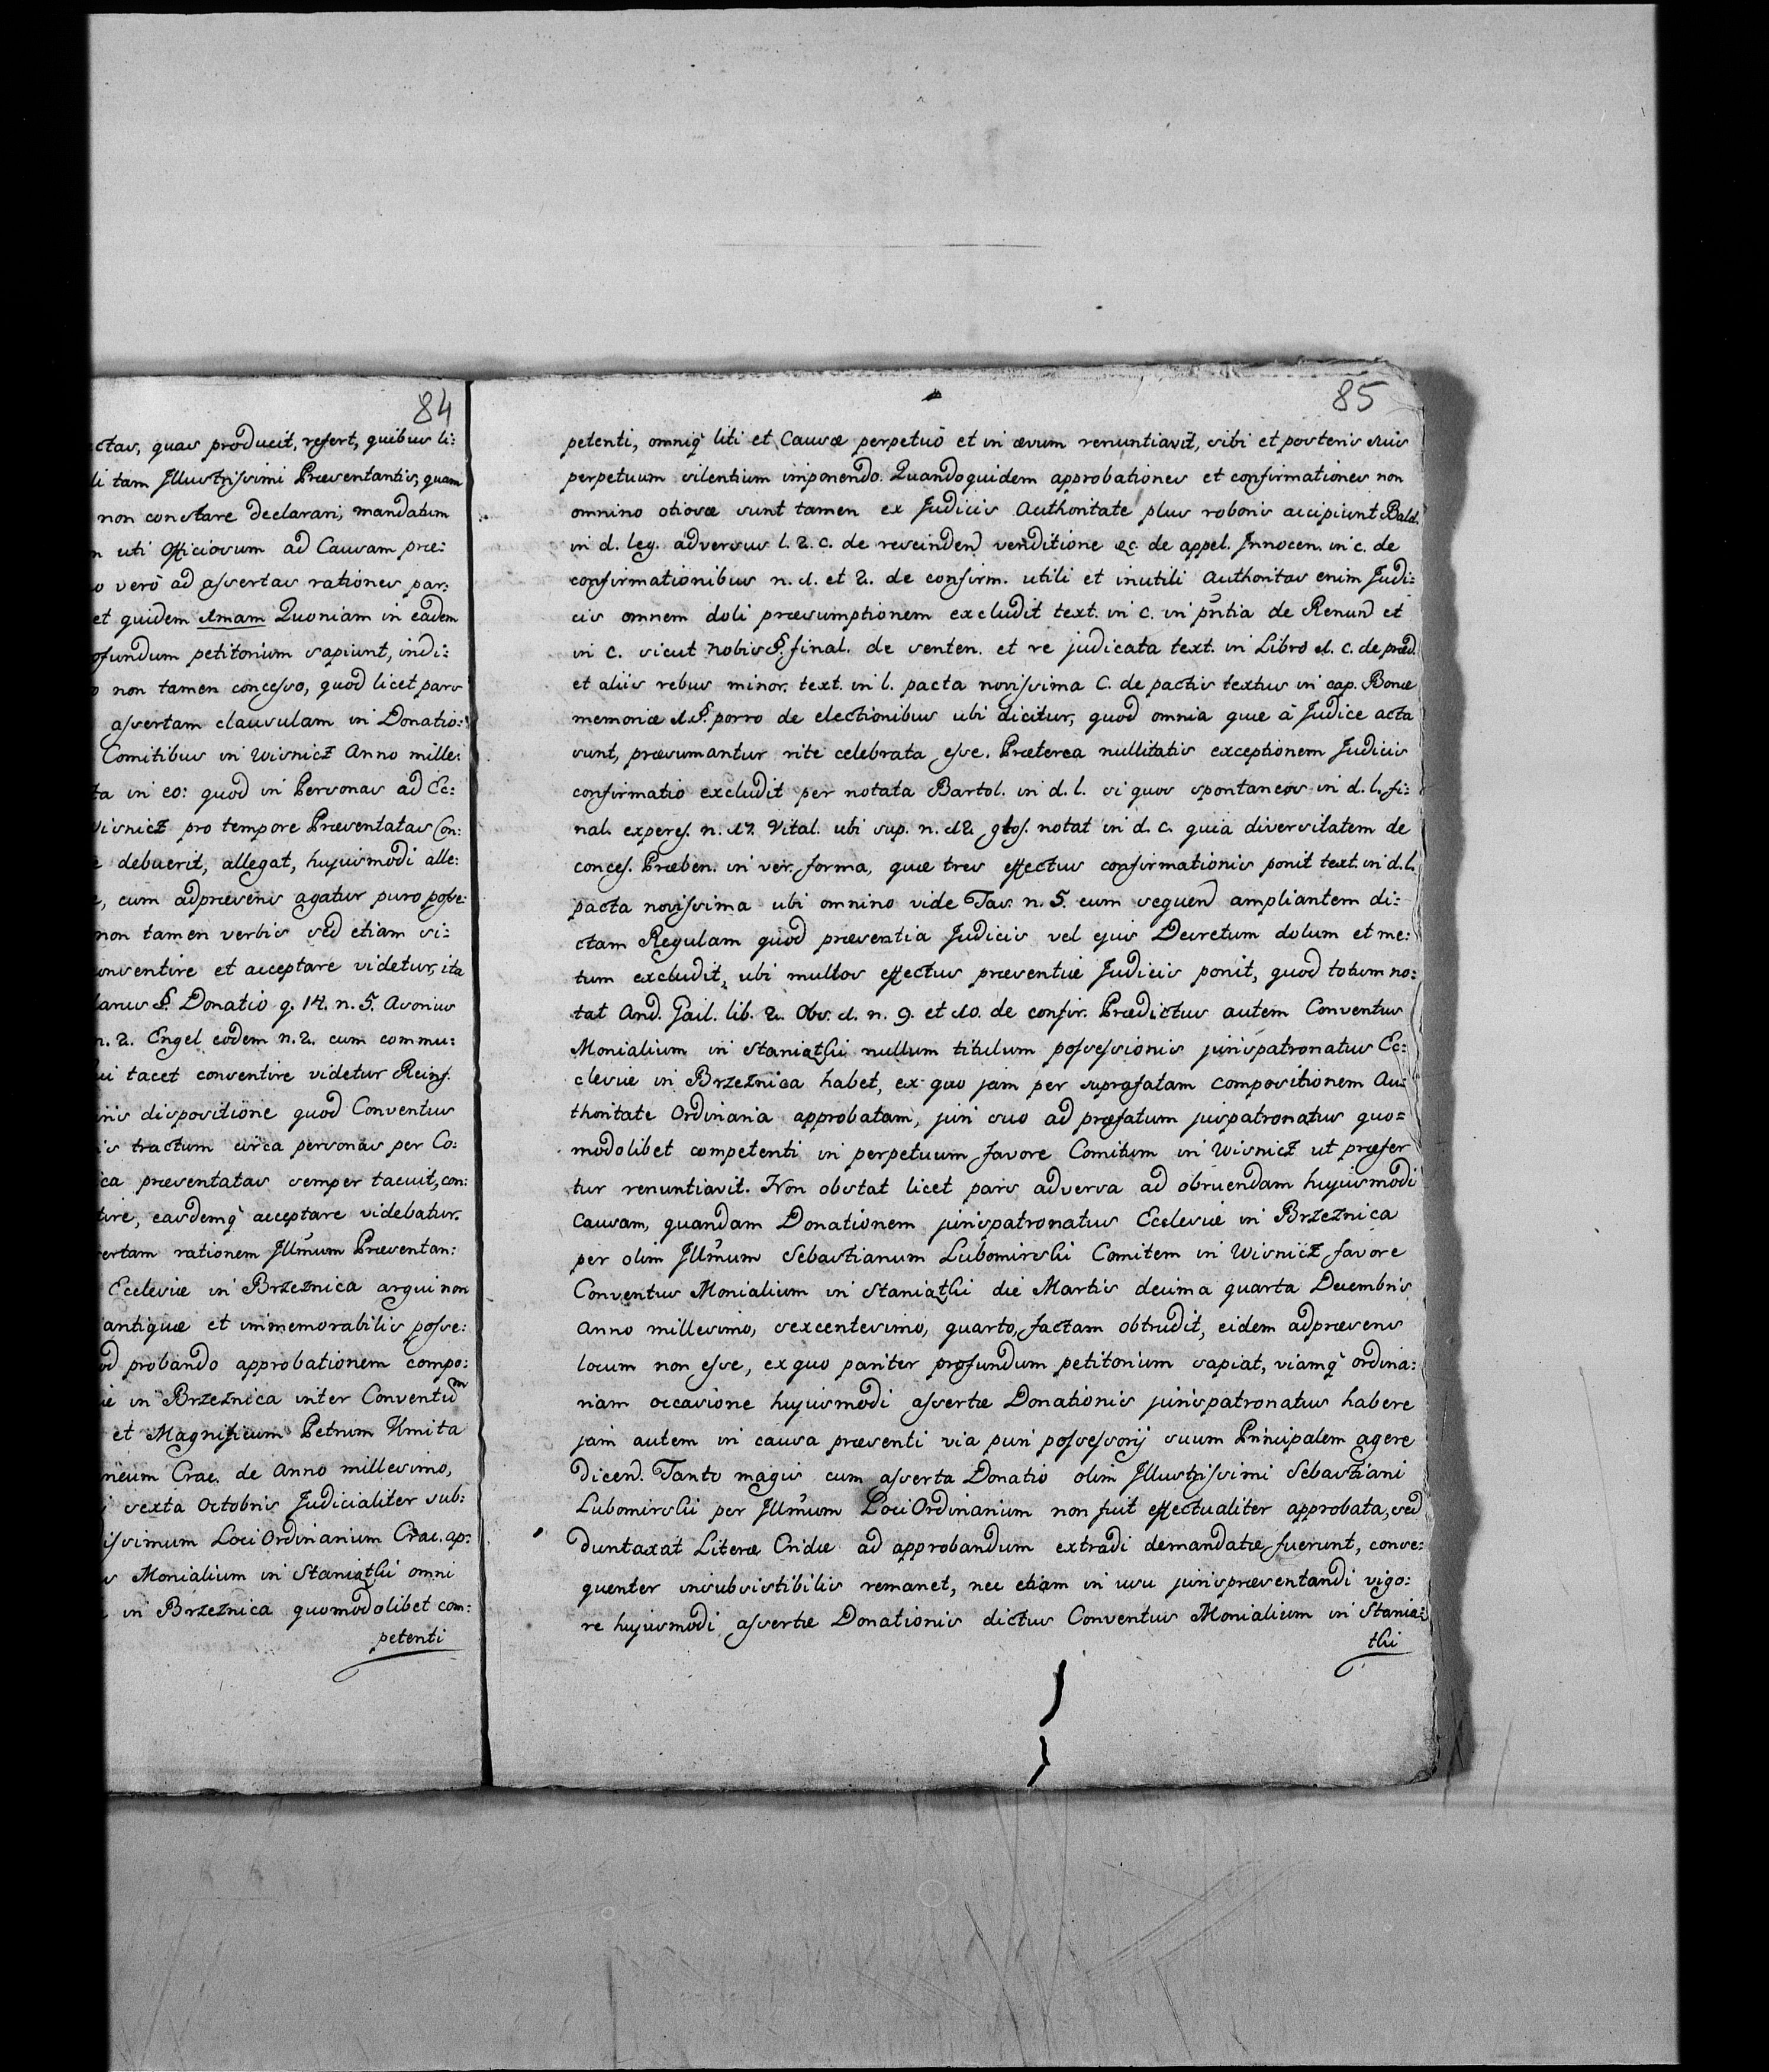 84
ctas, quas producit, refert, quibus li:
li tam Jllustrissimi Præsentantis, quam
non constare declarari, mandatum
uti officiosum ad Causam præ:
o verò ad assertas rationes par:
et quidem 1mam Quoniam in eadem
ofundum petitorium sapiunt, indi:
non tamen concesso, quod licet pars
assertam clausulam in Donatio:
Comitibus in Wisnicz Anno mille:
ta in eo: quod in Personas ad Ec:
Visnicz pro tempore Præsentatas Con:
e debuerit, allegat, hujusmodi alle:
e, cum adpræsens agatur puro posse:
non tamen verbis sed etiam si:
onsentire et acceptare videtur, ita
larus §. Donatio q. 14. n. 5. Asonius
n. 2. Engel eodem n. 2. cum commu:
ui tacet consentire videtur Reinf.
inis dispositione quod Conventus
is tractum circa personas per Co:
ca præsentatas semper tacuit, con:
tire, easdemq̀ acceptare videbatur.
ertam rationem Jllm̃um Præsentan:
Ecclesiæ in Brzeznica argui non
antiquæ et immemorabilis posse:
od probando approbationem compo:
iæ in Brzeznica inter Conventum
et Magnificum Petrum Kmita
neum Crac. de Anno millesimo,
i sexta Octobris Judicialiter sub:
issimum Loci Ordinarium Crac. ap:
s Monialium in Staniatki omni
in Brzeznica quomodolibet com:
petenti
85
petenti, omniq̀ liti et Causæ perpetuò et in ævum renuntiavit, sibi et posteris suis
perpetuum silentium imponendo. Quandoquidem approbationes et confirmationes non
omnino otiosæ sunt tamen ex Judicis Authoritate plus roboris accipiunt Bald.
in d. leg. adversus l. 2. C. de rescindend venditione &c. de appel. Jnnocen. in c. de
confirmationibus n. 1. et 2. de confirm. utili et inutili Authoritas enim Judi:
cis omnem doli præsumptionem excludit text. in c. in pñtia de Renund et
in c. sicut nobis §. final. de senten. et re judicata text. in Libro 1. c. de præd.
et aliis rebus minor. text. in l. pacta novissima C. de pactis textus in cap. Bonæ
memoriæ 1. §. porro de electionibus ubi dicitur, quod omnia quæ à Judice acta
sunt, præsumantur rite celebrata esse. Præterea nullitatis exceptionem Judicis
confirmatio excludit per notata Bartol. in d. l. si quos spontaneos in d. l. fi:
nal. experes. n. 17. Vital. ubi sup. n. 12 glos. notat in d. c. quia diversitatem de
conces. Præben. in ver. forma, quæ tres effectus confirmationis ponit text. in d. l.
pacta novissima ubi omnino vide Jas. n. 5. cum sequend ampliantem di:
ctam Regulam quod præsentia Judicis vel ejus Decretum dolum et me:
tum excludit, ubi multos effectus præsentiæ Judicis ponit, quod totum no:
tat And. Gail. lib. 2. Obs. 1. n. 9. et 10. de confir. Prædictus autem Conventus
Monialium in Staniatki nullum titulum possessionis jurispatronatus Ec:
clesiæ in Brzeznica habet, ex quo jam per suprafatam compositionem Au:
thoritate Ordinaria approbatam, juri suo ad præfatum juspatronatus quo=
modolibet competenti in perpetuum favore Comitum in Wisnicz ut præfer
tur renuntiavit. Non obstat licet pars adversa ad obruendam hujusmodi
Causam, quandam Donationem jurispatronatus Ecclesiæ in Brzeznica
per olim Jllm̃um Sebastianum Lubomirski Comitem in Wisnicz favore
Conventus Monialium in Staniatki die Martis decima quarta Decembris
Anno millesimo, sexcentesimo, quarto, factam obtrudit, eidem adpræsens
locum non esse, ex quo pariter profundum petitorium sapiat, viamq̀ ordina:
riam occasione hujusmodi assertæ Donationis jurispatronatus habere
jam autem in causa præsenti via puri possessorij suum Principalem agere
dicend. Tanto magis cum asserta Donatio olim Jllustrissimi Sebastiani
Lubomirski per Jllm̃um Loci Ordinarium non fuit effectualiter approbata, sed
duntaxat Literæ Cridæ ad approbandum extradi demandatæ fuerunt, conse:
quenter insubsistibilis remanet, nec etiam in usu jurispræsentandi vigo:
re hujusmodi assertæ Donationis dictus Conventus Monialium in Stania:
tki